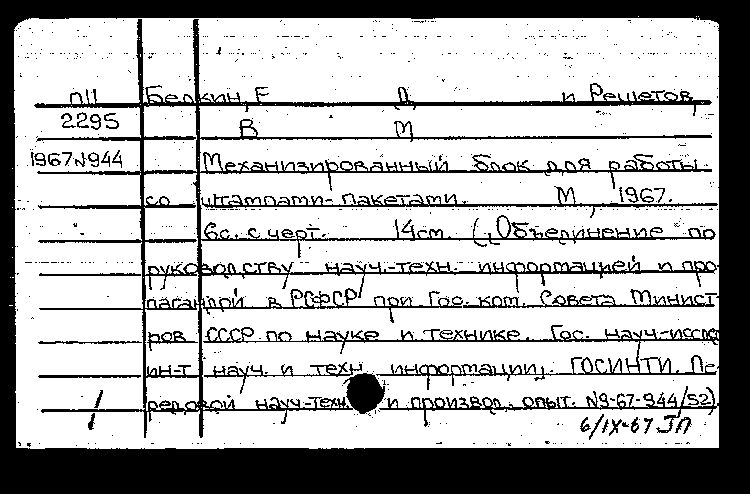 П11 Белкин, Е Д и Решетов,
2295 В М
1967№944 Механизированный блок для работы
со штампами-пакетами. М, 1967.
6с. с черт. 14см. (Объединение по
руководству науч.-техн. информацией и про-
пагандой в РСФСР при Гос. ком. Совета Минист-
ров СССР по науке и технике. Гос. науч.-исслед
ин-т науч. и техн информации. ГОСИНТИ. Пе-
редовой науч-техн. и производ. опыт. №9-67-944/52).
6/IX-67 ЛП